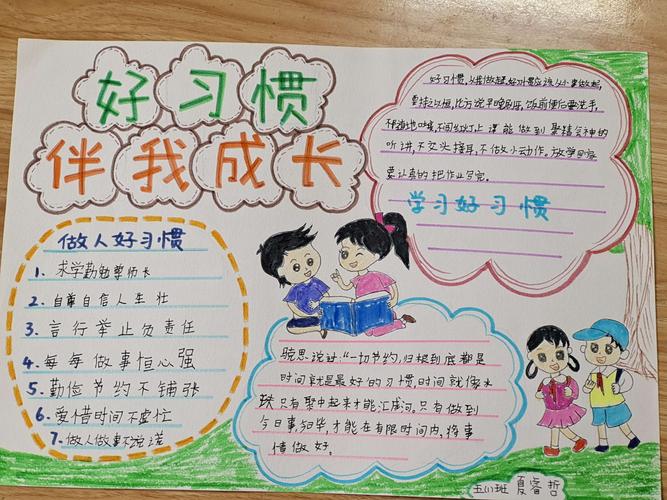 好习惯
伴我成长
做人好习惯
1、求学勤勉尊师长
2、自尊自信人生壮
3、言行举止负责任
4、每每做事恒心强
5、勤俭节约不铺张
6、爱惜时间不虚忙
7、做人做事不说谎
好习惯,从我做起,好习惯应该从小事做起,
要持之以恒,比方说早晚刷牙,饭前便后要洗手,
不随地吐痰,不闯红灯,上课能做到聚精会神的
听讲,不交头接耳,不做小动作。放学回家
要认真的把作业写完。
学习好习惯
晓思说过:"一切节约,归根到底都是
时间就是最好的习惯,时间就像水
珠只有聚集起来才能汇成河。只有做到
今日事,今日毕,才能在有限时间内,将事
情做好。
五(1)班 夏睿哲